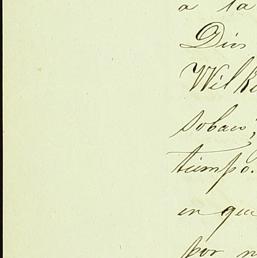 a la
Dios
Wilk
tiempo.
en que
por n